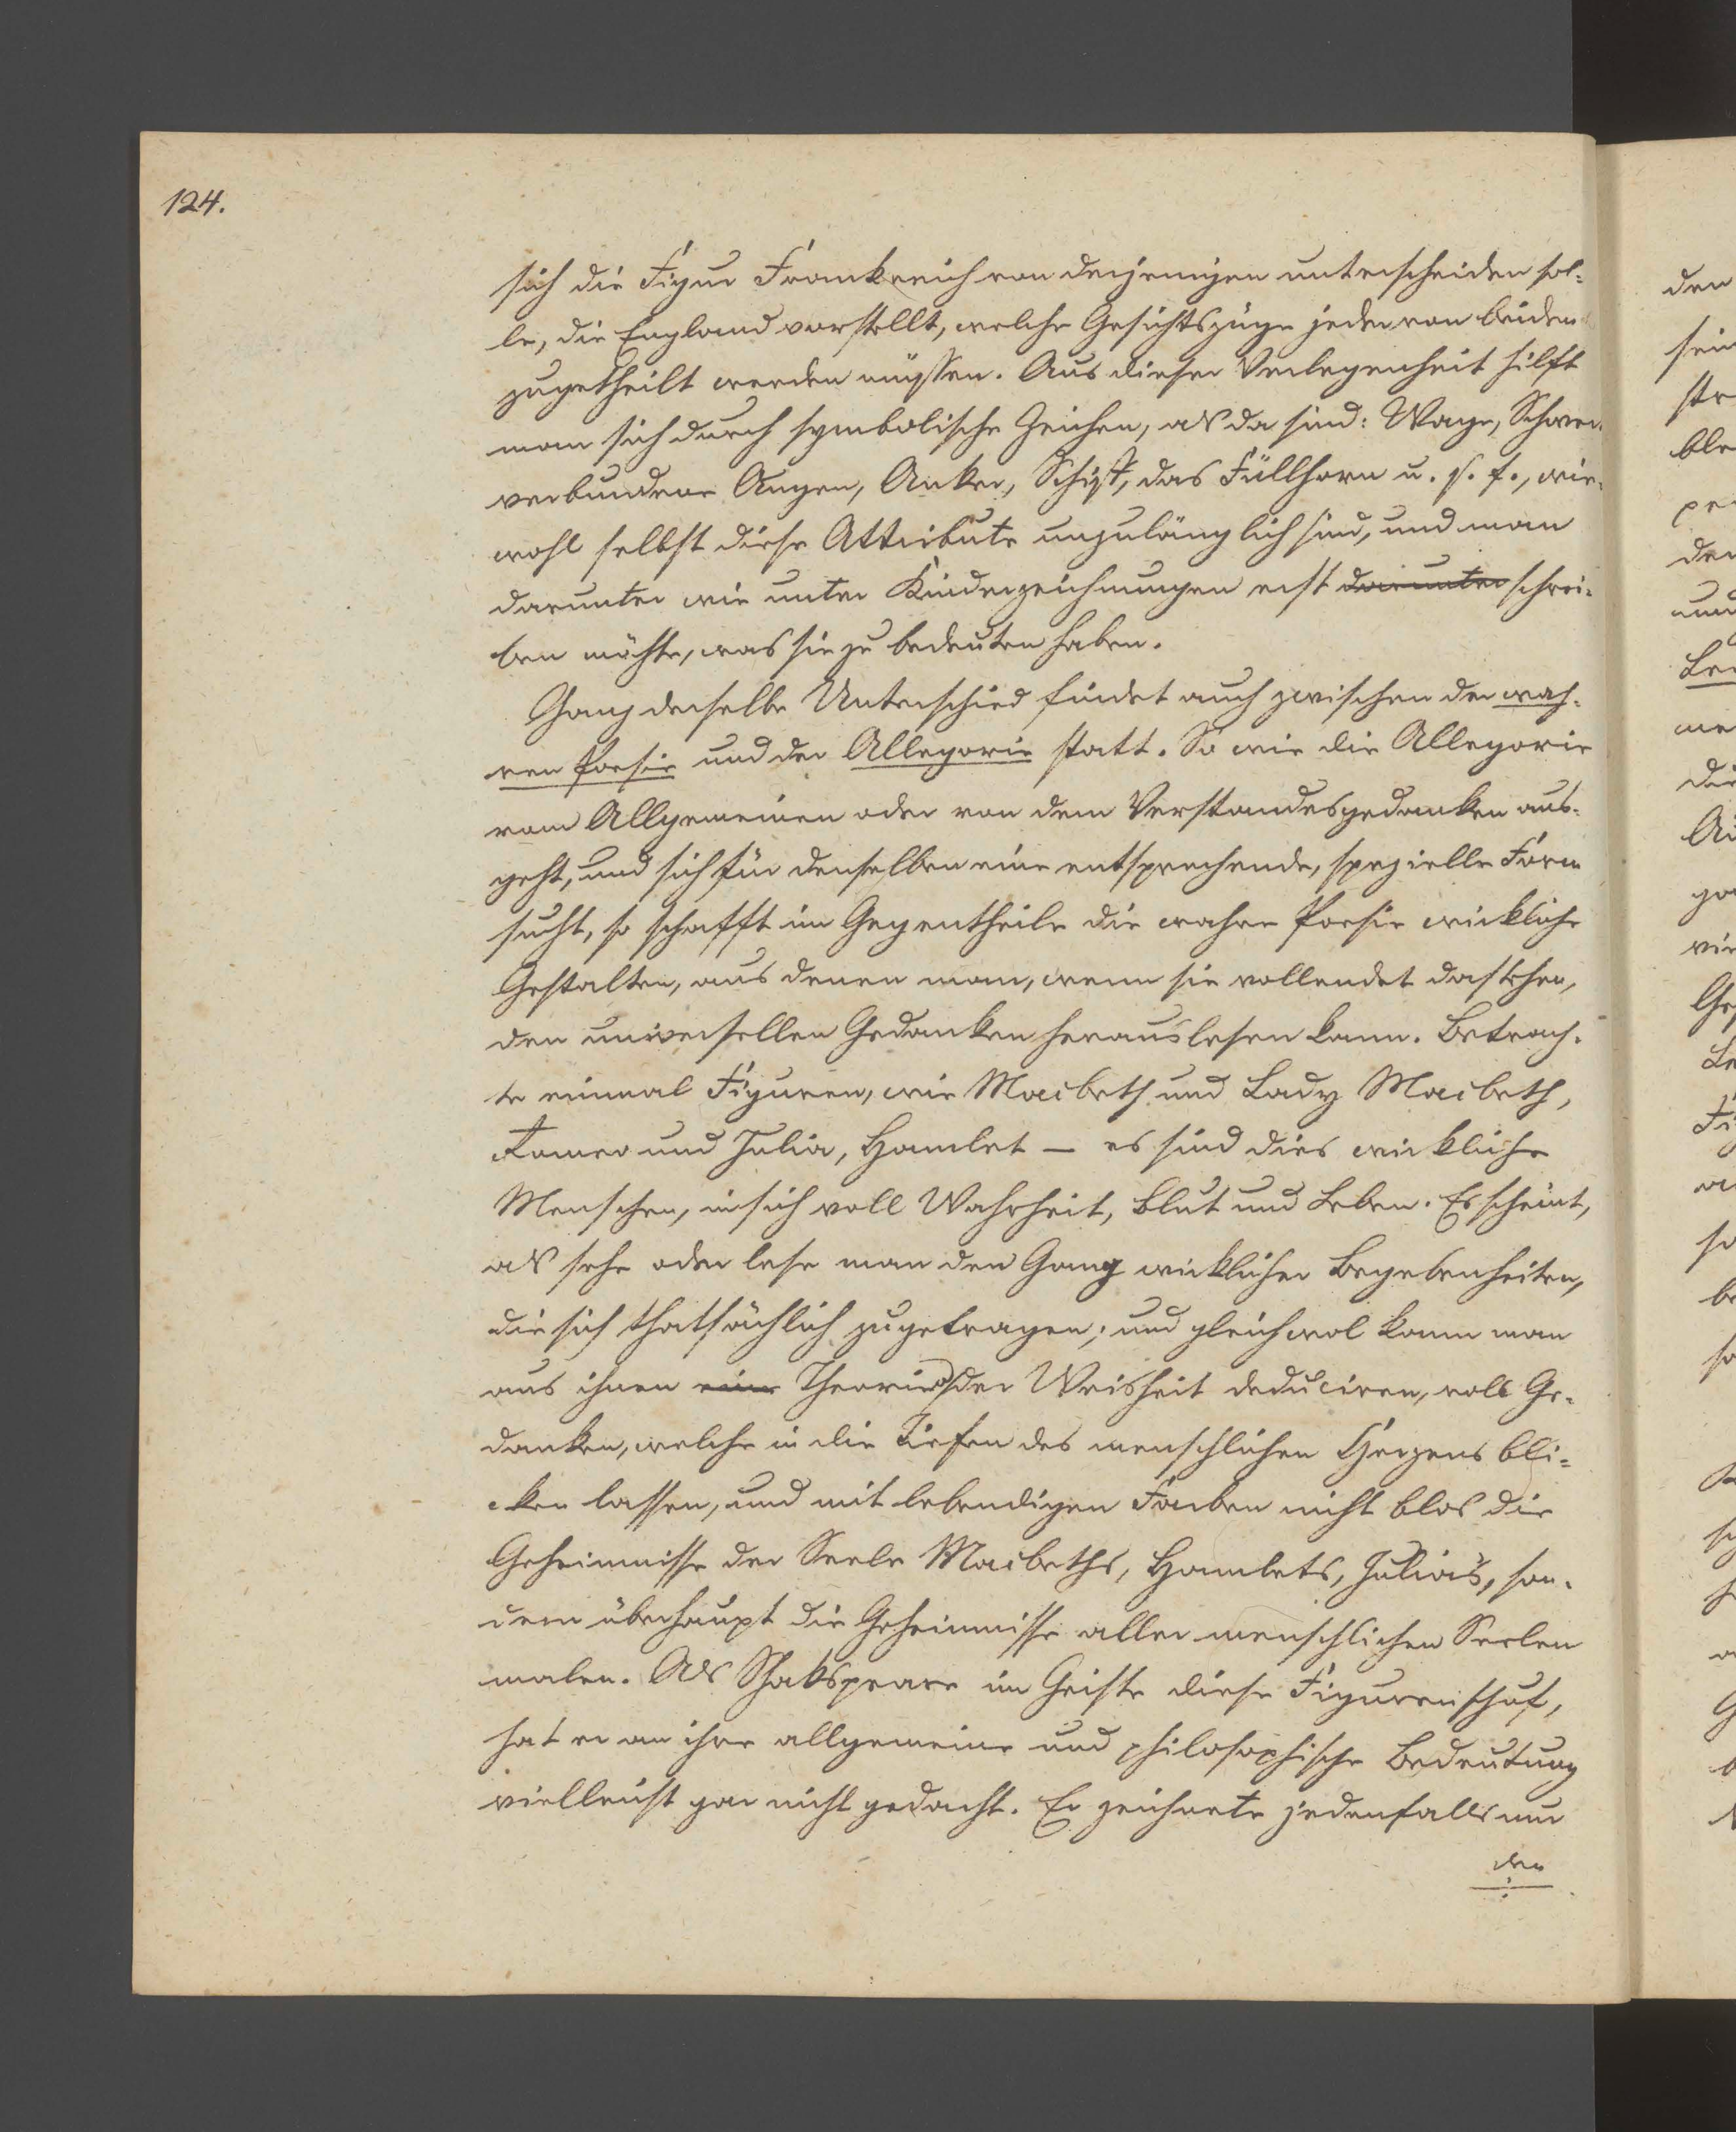 124.
sich die Figur Frankreich von derjenigen unterscheiden sol-
le, die England vorstellt, welche Gesichtszüge jeder von beiden
zugetheilt werden müssen. Aus dieser Verlegenheit hilft
man sich durch symbolische Zeichen, als da sind: Wage,
verbundene Augen, Anker, Schiff, das Füllhorn u. s. f., wie-
wohl selbst diese Attribute unzulänglich sind, und man
darunter wie unter Kinderzeichnungen erst darunter schrei-
ben möchte, was sie zu bedeuten haben.
Ganz derselbe Unterschied findet auch zwischen der wah-
ren Poesie und der Allegorie statt. So wie die Allegorie
vom Allgemeinen oder von dem Verstandesgedanken aus-
geht, und sich für denselben eine entsprechende, spezielle Form
sucht, so schafft im Gegentheile die wahre Poesie wirkliche
Gestalten, aus denen man, wenn sie vollendet dastehen,
den universellen Gedanken herauslesen kann. Betrach-
te einmal Figuren, wie Macbeth und Lady Macbeth,
Romeo und Julia, Hamlet – es sind dies wirkliche
Menschen, in sich voll Wahrheit, Blut und Leben. Es scheint,
als sehe oder lese man den Gang wirklicher Begebenheiten,
die sich thatsächlich zugetragen; und gleichwol kann man
aus ihnen eine Theorien der Weisheit deduciren, voll Ge-
danken, welche in die Tiefen des menschlichen Herzens bli-
cken lassen, und mit lebendigen Farben nicht blos die
Geheimnisse der Seele Macbeths, Hamlets, Julia's, son-
dern überhaupt die Geheimnisse aller menschlichen Seelen
malen. Als Shakspeare im Geiste diese Figuren schuf,
hat er an ihre allgemeine und philosophische Bedeutung
vielleicht gar nicht gedacht. Er zeichnete jedenfalls nur
den